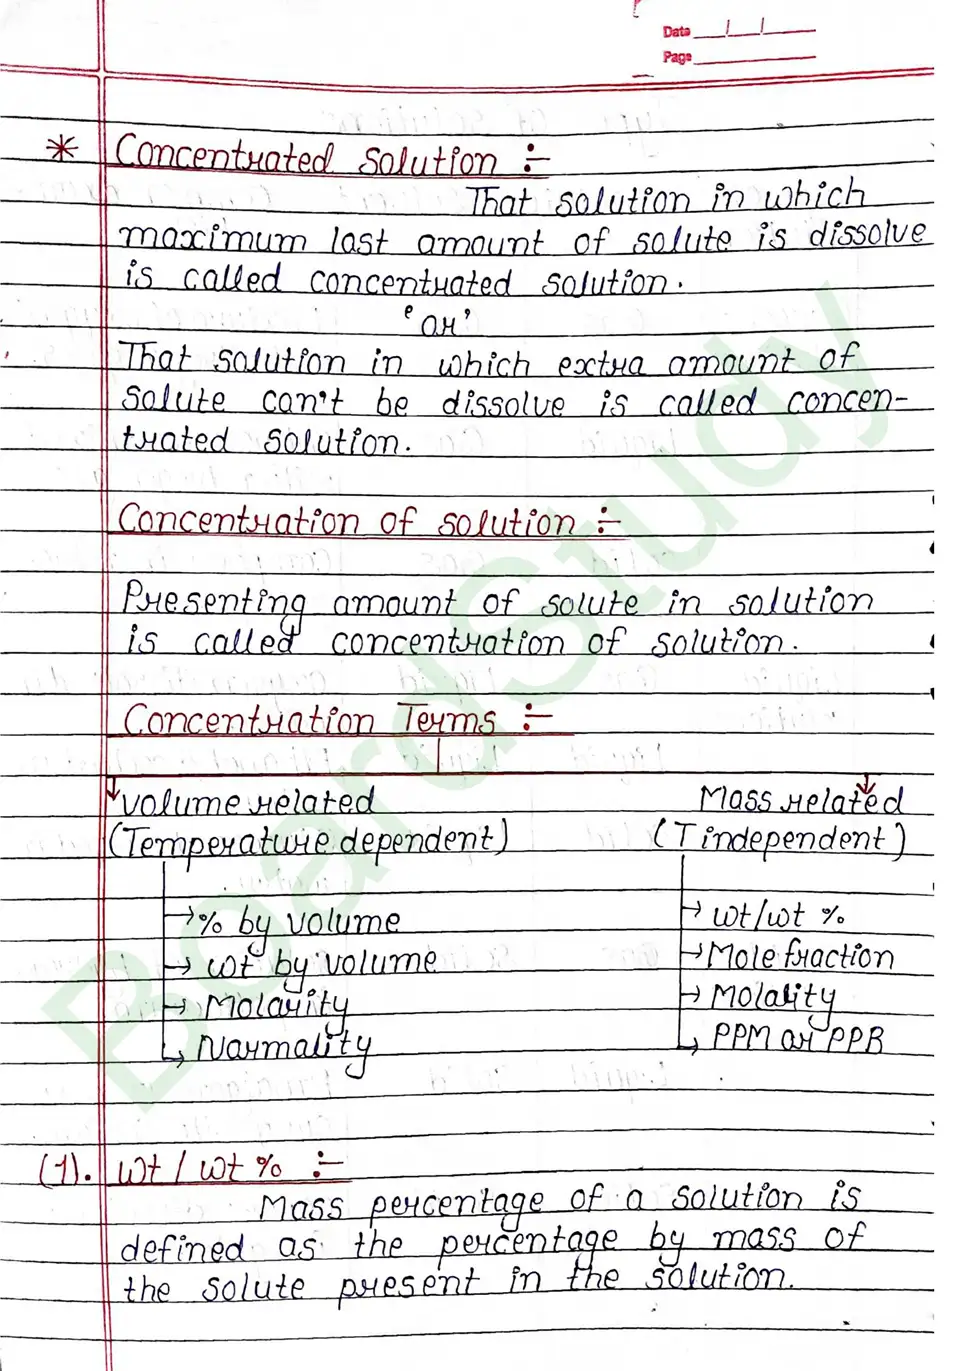 Date
Page
* Concentrated Solution :-
That solution in which
maximum last amount of solute is dissolve
is called concentrated solution.
'OR'
That solution in which extra amount of
Solute can't be dissolve is called concen-
trated solution.
Concentration of solution :-
Presenting amount of solute in solution
is called concentration of solution.
Concentration Terms :-
Volume related
Mass related
(Temperature dependent)
(T independent)
→ % by volume
→ wt/wt %
→ wt by volume
→ Mole fraction
→ Molarity
→ Molality
→ Normality
→ PPM or PPB
(1). wt / wt % :-
Mass percentage of a solution is
defined as the percentage by mass of
the solute present in the solution.
BoardStudy